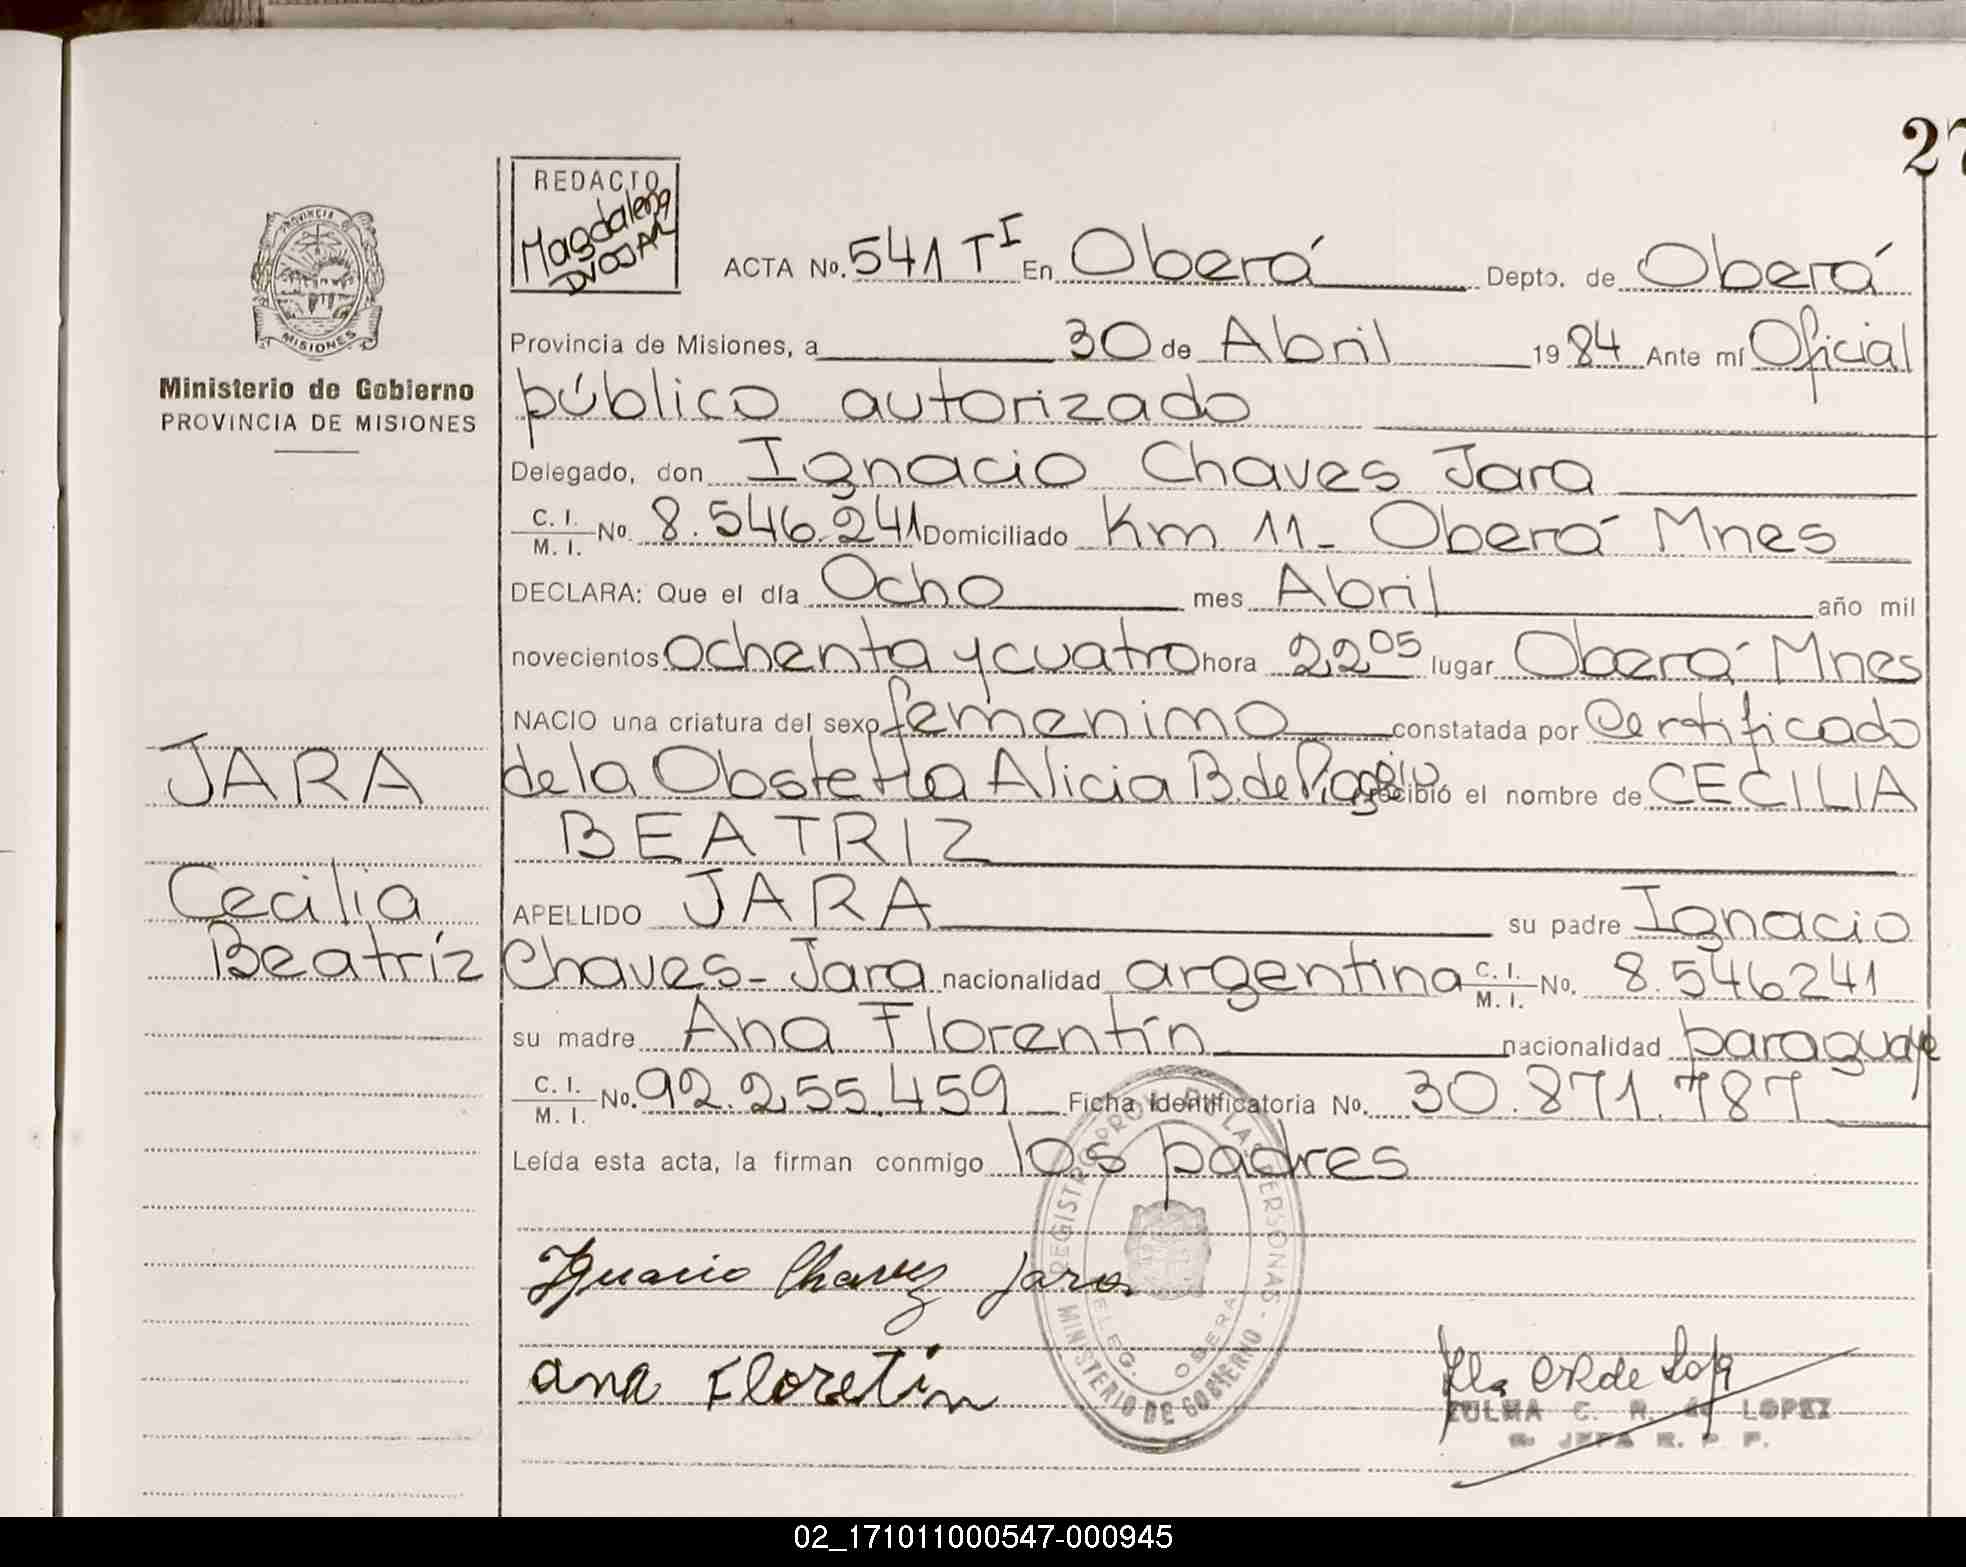 27
REDACTO
Magdalena
DVOJAK
ACTA No. 541 T I En Oberá Depto. de Oberá
Provincia de Misiones, a 30 de Abril 1984 Ante mí Oficial
público autorizado
Delegado, don Ignacio Chaves Jara
C. I. / M. I. No. 8.546.241 Domiciliado Km 11 - Oberá Mnes
DECLARA: Que el día Ocho mes Abril año mil
novecientos ochenta y cuatro hora 22 05 lugar Oberá Mnes
NACIO una criatura del sexo femenino constatada por Certificado
de la Obstetra Alicia B. de recibió el nombre de CECILIA
BEATRIZ
APELLIDO JARA su padre Ignacio
Chaves - Jara nacionalidad argentina C. I. / M. I. No. 8.546241
su madre Ana Florentín nacionalidad paraguaye
C. I. / M. I. No. 92.255.459 Ficha Identificatoria No. 30.871.787
Leída esta acta, la firman conmigo los padres
Ignacio Chavez Jara
ana Floretin
PROVINCIA
MISIONES
Ministerio de Gobierno
PROVINCIA DE MISIONES
JARA
Cecilia
Beatríz
REGISTRO PROV. DE LAS PERSONAS - MINISTERIO DE GOBIERNO -
DELEG. OBERA
ZULMA C. R. de LOPEZ
JEFA R. P. P.
02_171011000547-000945